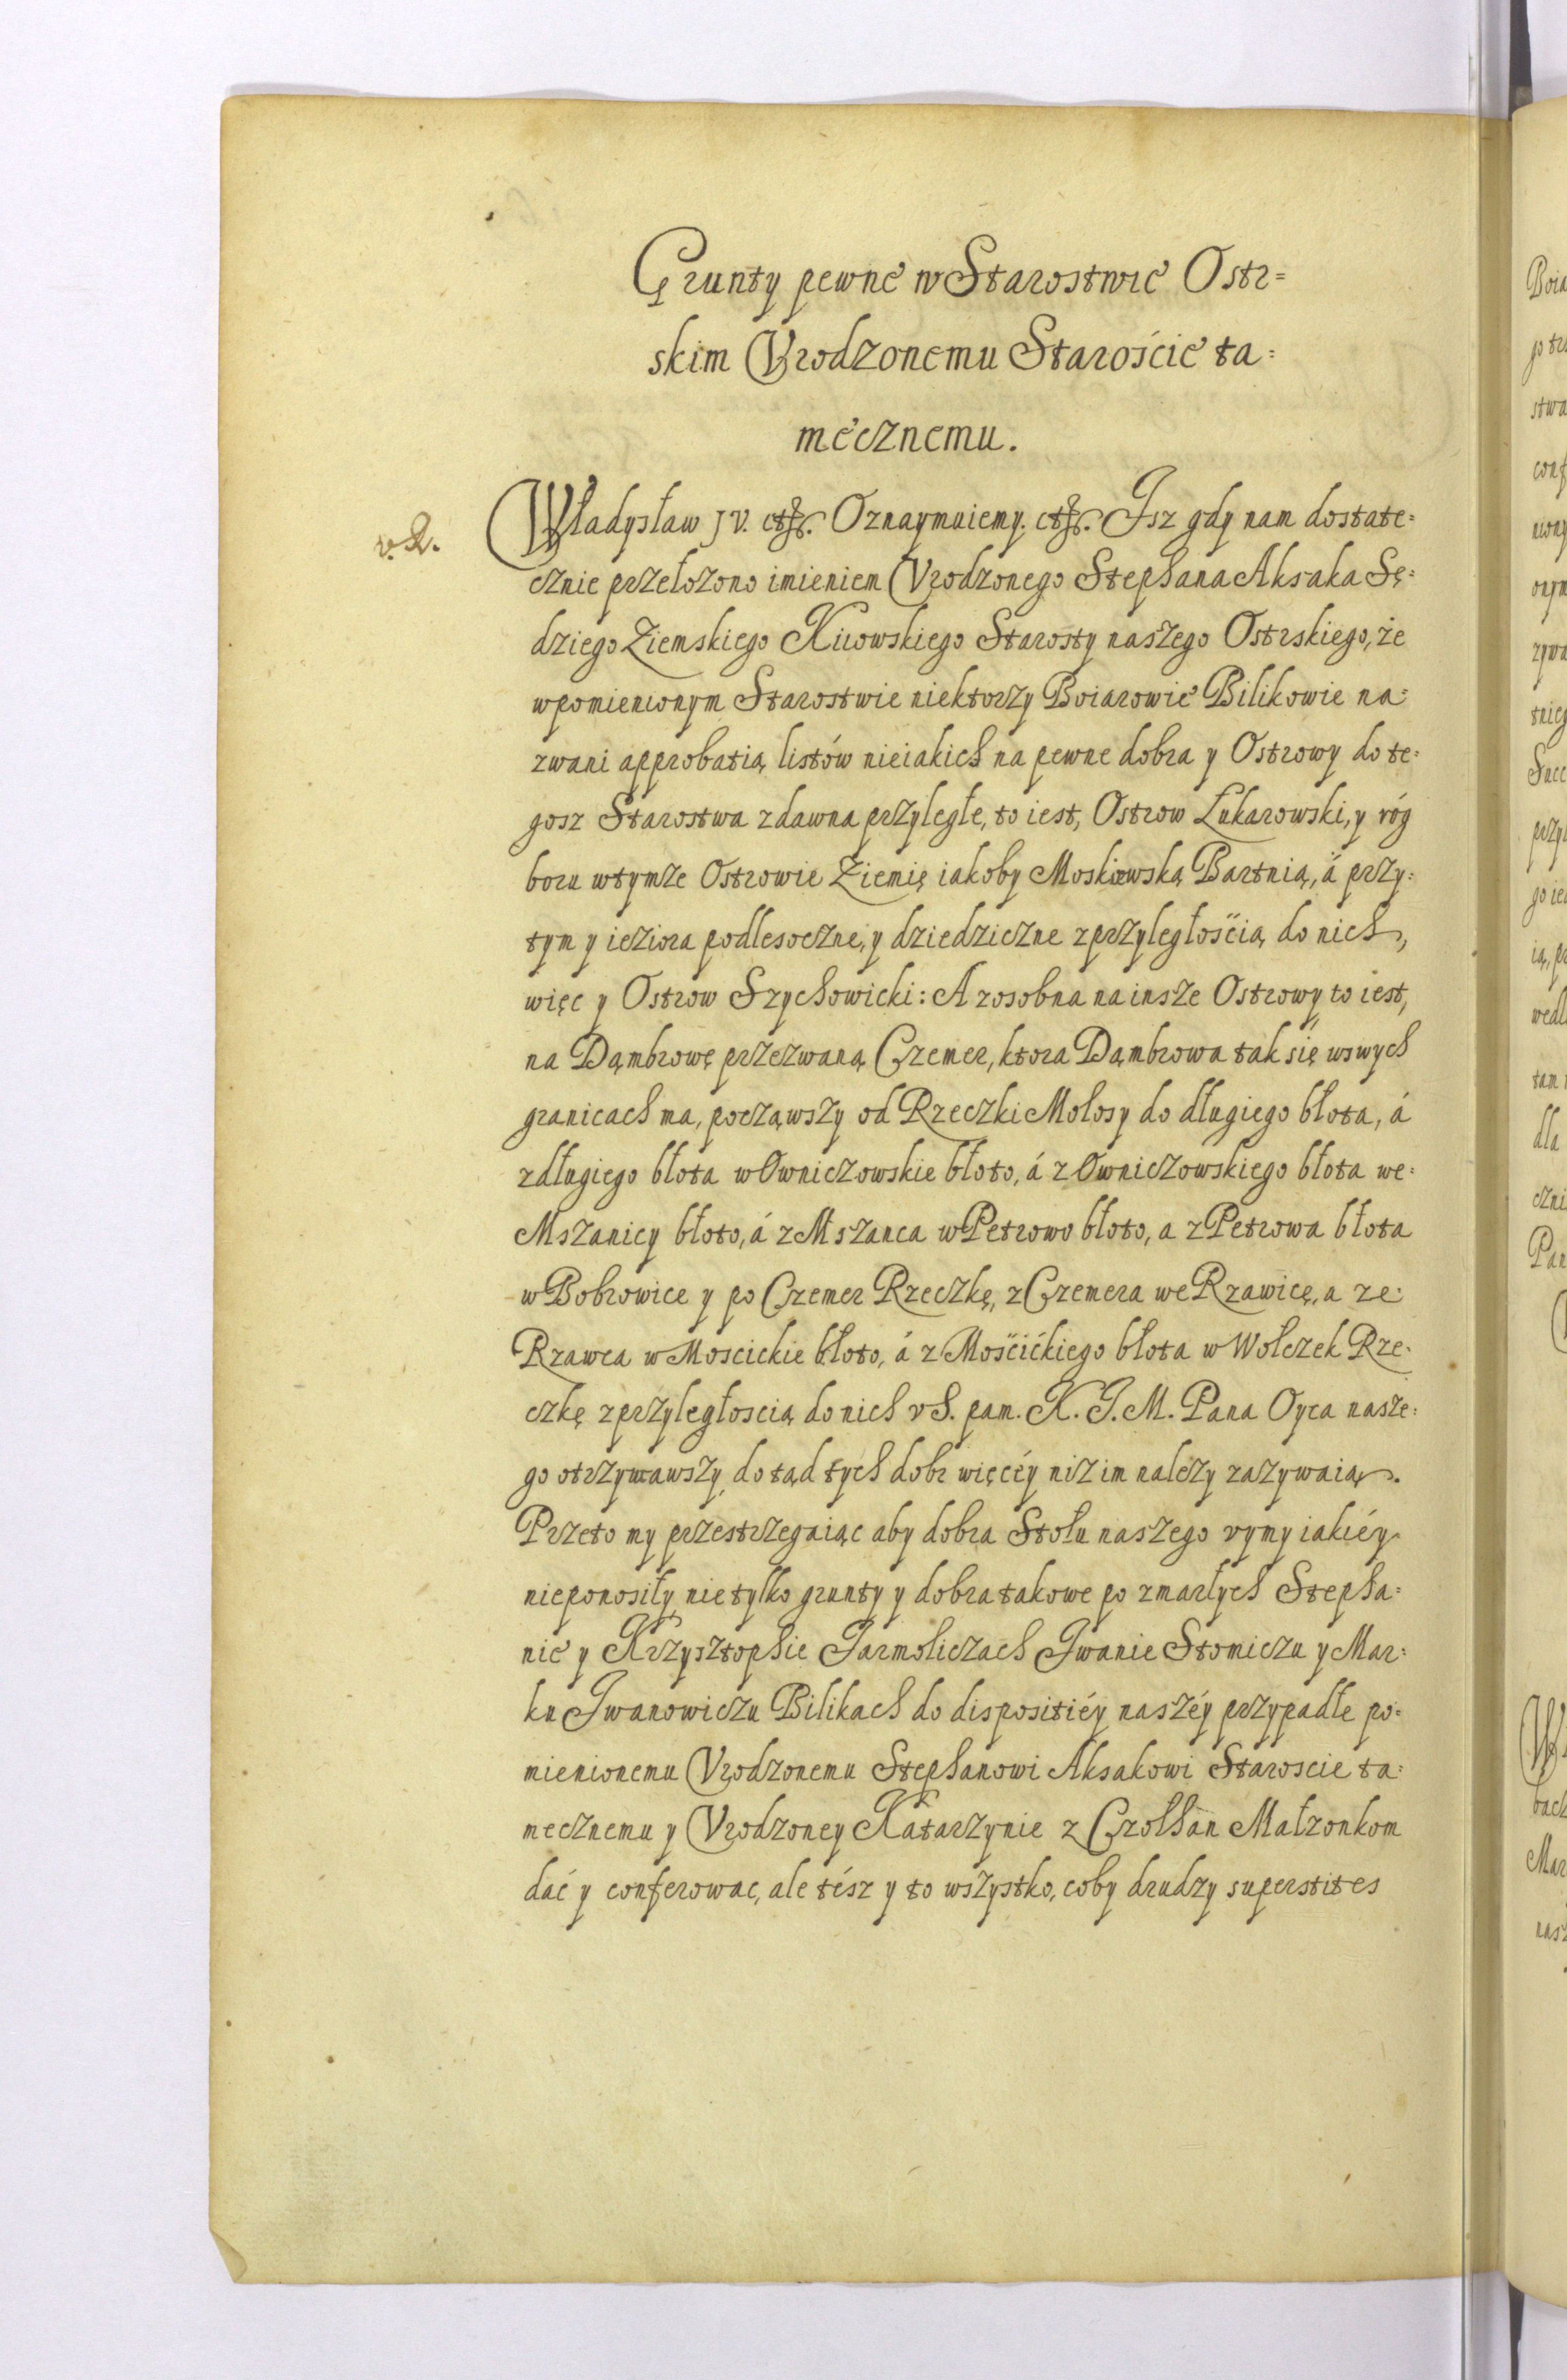 Grunty pewne w Starostwie Ostr=
skim Vrodzonemu Starościé ta=
mecznemu.
v. Q.
Władysław JV. etc. Oznaymuiemy. etc. Jsz gdy nam dostate=
cznie przełozono imieniem Vrodzonego Stephana Aksaka Sę=
dziego Ziemskiego Kiiowskiego Starosty naszego Ostrskiego, że
wpomienionym Starostwie niektorzy Boiarowie Bilikowie na=
zwani approbatią listów nieiakich na pewne dobra y Ostrowy do te=
gosz Starostwa zdawna przyległe, to iest, Ostrow Łukarowski, y róg
boru wtymze Ostrowie Ziemię iakoby Moskiewską Bartnią, á przy=
tym y ieziora podlesoczne, y dziedziczne zprzyległością do nich,
więc y Ostrow Szychowicki: A zosobna na insze Ostrowy to iest,
na Dąmbrowę przezwaną Czemer, ktora Dąmbrowa tak się wswych
granicach ma, począwszy od Rzeczki Mołosy do długiego błota, á
zdługiego błota w Owniczowskie błoto, á z Owniczowskiego błota we=
Mszanicy błoto, á z Mszanca w Petrowo błoto, a z Petrowa błota
w Bobrowice y po Czemer Rzeczkę, z Czemera we Rzawicę, a ze=
Rzawca w Moscickie błoto, á z Mościćkiego błota w Wołczek Rze=
czkę zprzyległoscią do nich v S. pam. K. J. M. Pana Oyca nasze=
go otrzymawszy, dotąd tych dobr więcéy niz im nalezy zazywaią.
Przeto my przestrzegaiąc aby dobra Stołu naszego vymy iakiéy
nieponosiły nie tylko grunty y dobra takowe po zmarłych Stepha=
nie y Krzysztophie Jarmoliczach Jwanie Stomiczu y Mar=
ku Jwanowiczu Bilikach do dispositiéy naszéy przypadłe po=
mienionemu Vrodzonemu Stephanowi Aksakowi Staroscie ta=
mecznemu y Vrodzoney Katarzynie z Czołhan Małzonkom
dać y conferowac, ale tész y to wszystko, coby drudzy superstites